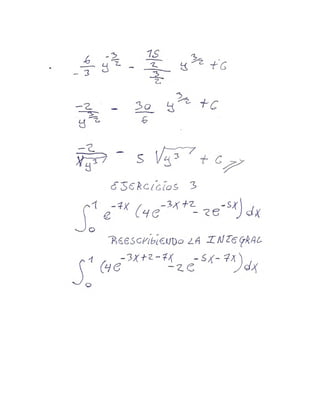 . 6/-3 y^-3/2 - 15/2 / 3/2 y^3/2 + C
-2/y^3/2 - 30/6 y^3/2 + C
-2/√y³ - 5 √y³ + C
EJERCICIOS 3
∫₀¹ e^-7x (4e^-3x+2 - 2e^-5x) dx
REESCRIBIENDO LA INTEGRAL
∫₀¹ (4e^-3x+2-7x - 2e^-5x-7x) dx